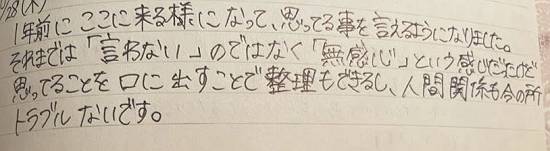 /28(木)
1年前にここに来る様になって、思ってる事を言えるようになりました。
それまでは「言わない」のではなく「無感心」という感じだったけど
思ってることを口に出すことで整理もできるし、人間関係も今の所
トラブルないです。